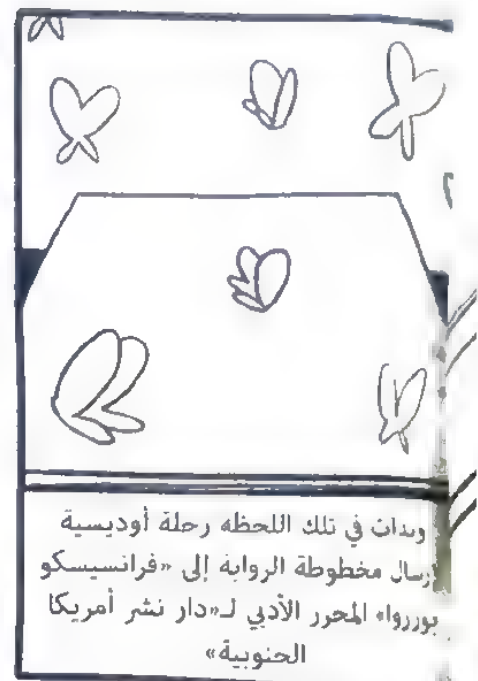 وبدأت في تلك اللحظه رحلة أوديسية
إرسال مخطوطة الرواية إلى «فرانسيسكو
بورروا» المحرر الأدبي لـ«دار نشر أمريكا
الجنوبية»